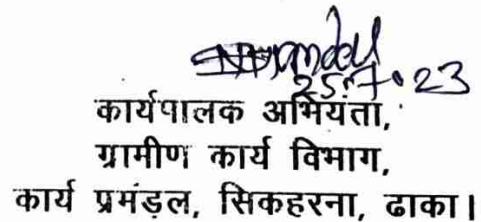 25.7.23
कार्यपालक अभियंता,
ग्रामीण कार्य विभाग,
कार्य प्रमंडल, सिकहरना, ढाका।